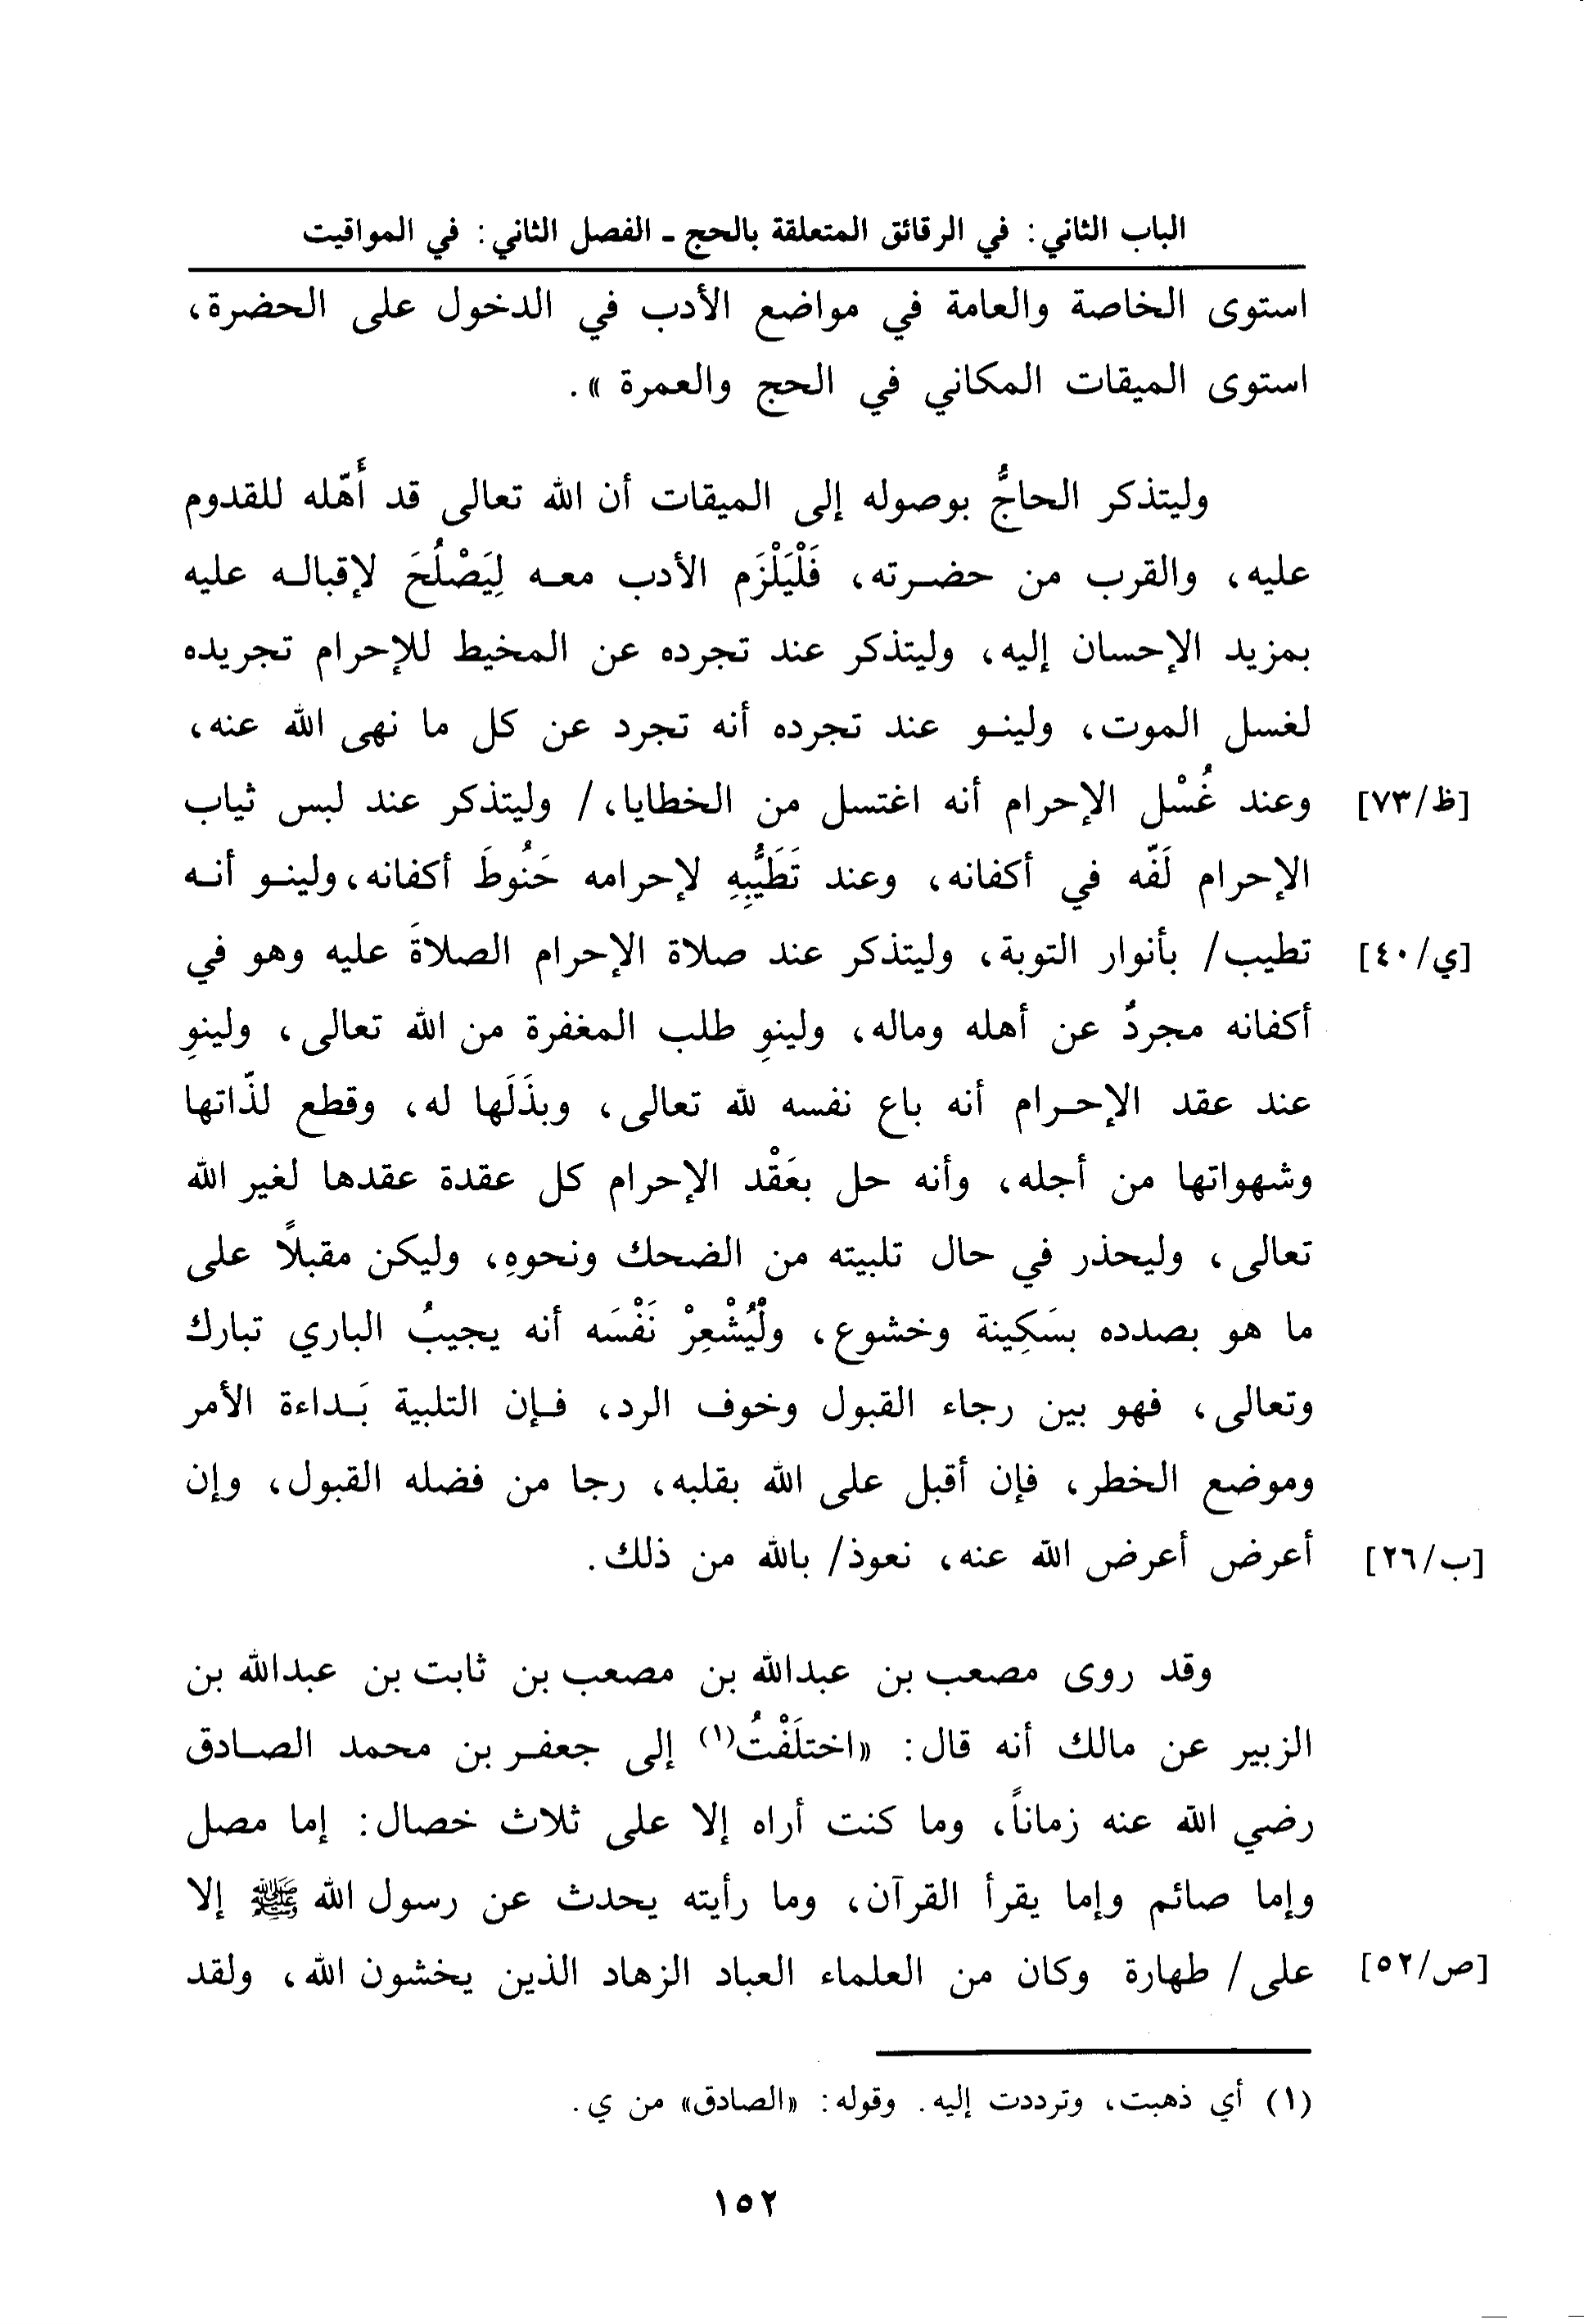 الباب الثاني: في الرقائق المتعلقة بالحج ـ الفصل الثاني: في المواقيت
استوى الخاصة والعامة في مواضع الأدب في الدخول على الحضرة،
استوى الميقات المكاني في الحج والعمرة ».
وليتذكر الحاجُّ بوصوله إلى الميقات أن الله تعالى قد أَهّله للقدوم
عليه، والقرب من حضرته، فَلْيَلْزَم الأدب معه لِيَصْلُحَ لإقباله عليه
بمزيد الإحسان إليه، وليتذكر عند تجرده عن المخيط للإحرام تجريده
لغسل الموت، ولينو عند تجرده أنه تجرد عن كل ما نهى الله عنه،
وعند غُسْل الإحرام أنه اغتسل من الخطايا،/ وليتذكر عند لبس ثياب [ظ/٧٣]
الإحرام لَفّه في أكفانه، وعند تَطَيُّبِهِ لإحرامه حَنُوطَ أكفانه، ولينو أنه
تطيب/ بأنوار التوبة، وليتذكر عند صلاة الإحرام الصلاةَ عليه وهو في [ي/٤٠]
أكفانه مجردٌ عن أهله وماله، ولينوِ طلب المغفرة من الله تعالى، ولينوِ
عند عقد الإحرام أنه باع نفسه لله تعالى، وبذَلَها له، وقطع لذّاتها
وشهواتها من أجله، وأنه حل بعَقْد الإحرام كل عقدة عقدها لغير الله
تعالى، وليحذر في حال تلبيته من الضحك ونحوهِ، وليكن مقبلاً على
ما هو بصدده بسَكِينة وخشوع، ولْيُشْعِرْ نَفْسَه أنه يجيبُ الباري تبارك
وتعالى، فهو بين رجاء القبول وخوف الرد، فإن التلبية بَداءة الأمر
وموضع الخطر، فإن أقبل على الله بقلبه، رجا من فضله القبول، وإن
أعرض أعرض الله عنه، نعوذ/ بالله من ذلك. [ب/٢٦]
وقد روى مصعب بن عبدالله بن مصعب بن ثابت بن عبدالله بن
الزبير عن مالك أنه قال: «اختلَفْتُ(١) إلى جعفر بن محمد الصادق
رضي الله عنه زماناً، وما كنت أراه إلا على ثلاث خصال: إما مصل
وإما صائم وإما يقرأ القرآن، وما رأيته يحدث عن رسول الله ﷺ إلا
على/ طهارة وكان من العلماء العباد الزهاد الذين يخشون الله، ولقد [ص/٥٢]
(١) أي ذهبت، وترددت إليه. وقوله: «الصادق» من ي.
١٥٢